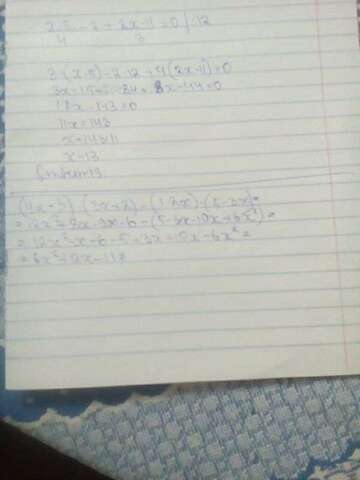 x-5 - 2 + 2x-11 = 0 | · 12
4 3
3·(x-5)-2·12+4(2x-11)=0
3x-15-24+8x-44=0
11x-143=0
11x=143
x=143:11
x=13
(4x-3)·(3x+2)-(1-2x)·(5-3x)=
=12x²+8x-9x-6-(5-3x-10x+6x²)=
=12x²-x-6-5+3x+10x-6x²=
=6x²+12x-11